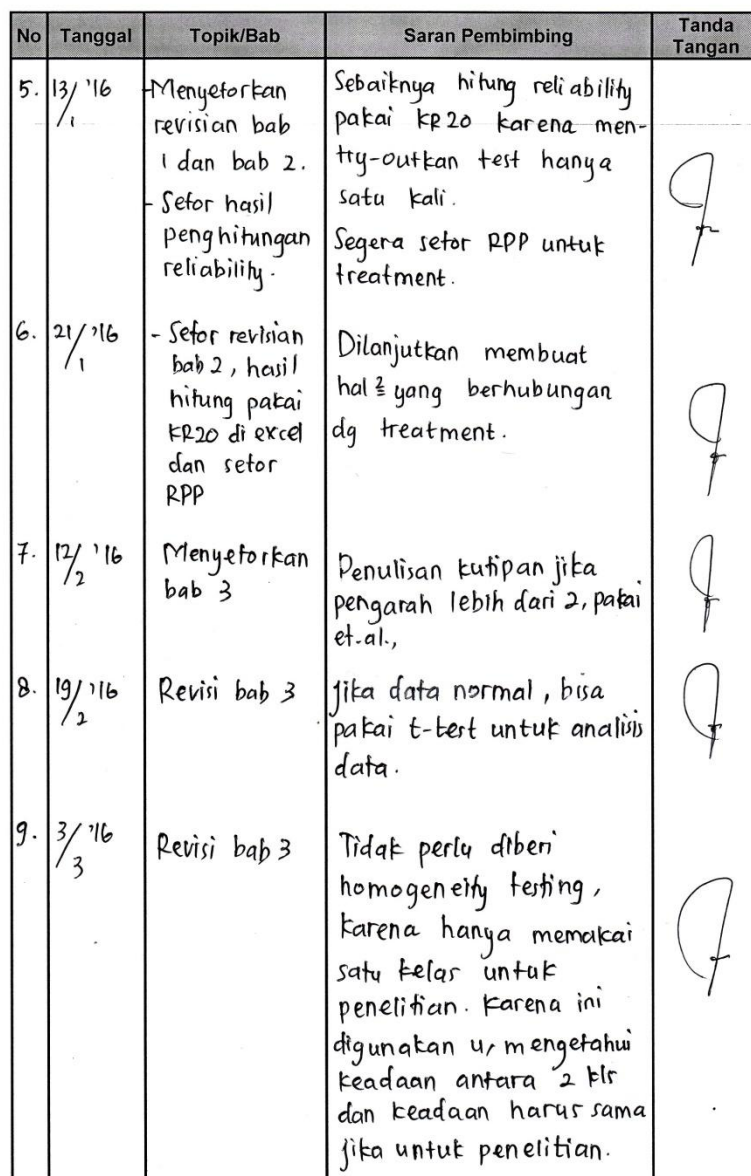 No Tanggal Topik/Bab Saran Pembimbing Tanda Tangan
5. 13/1 '16
-Menyetorkan
revisian bab
1 dan bab 2.
- Setor hasil
penghitungan
reliability.
Sebaiknya hitung reliability
pakai KR20 karena men-
try-outkan test hanya
satu kali.
Segera setor RPP untuk
treatment.
6. 21/1 '16
- Setor revisian
bab 2, hasil
hitung pakai
KR20 di excel
dan setor
RPP
Dilanjutkan membuat
hal² yang berhubungan
dg treatment.
7. 12/2 '16
Menyetorkan
bab 3
Penulisan kutipan jika
pengarah lebih dari 2, pakai
et.al.,
8. 19/2 '16
Revisi bab 3
Jika data normal, bisa
pakai t-test untuk analisis
data.
9. 3/3 '16
Revisi bab 3
Tidak perlu diberi
homogeneity testing,
karena hanya memakai
satu kelas untuk
penelitian. Karena ini
digunakan u/ mengetahui
keadaan antara 2 kls
dan keadaan harus sama
jika untuk penelitian.